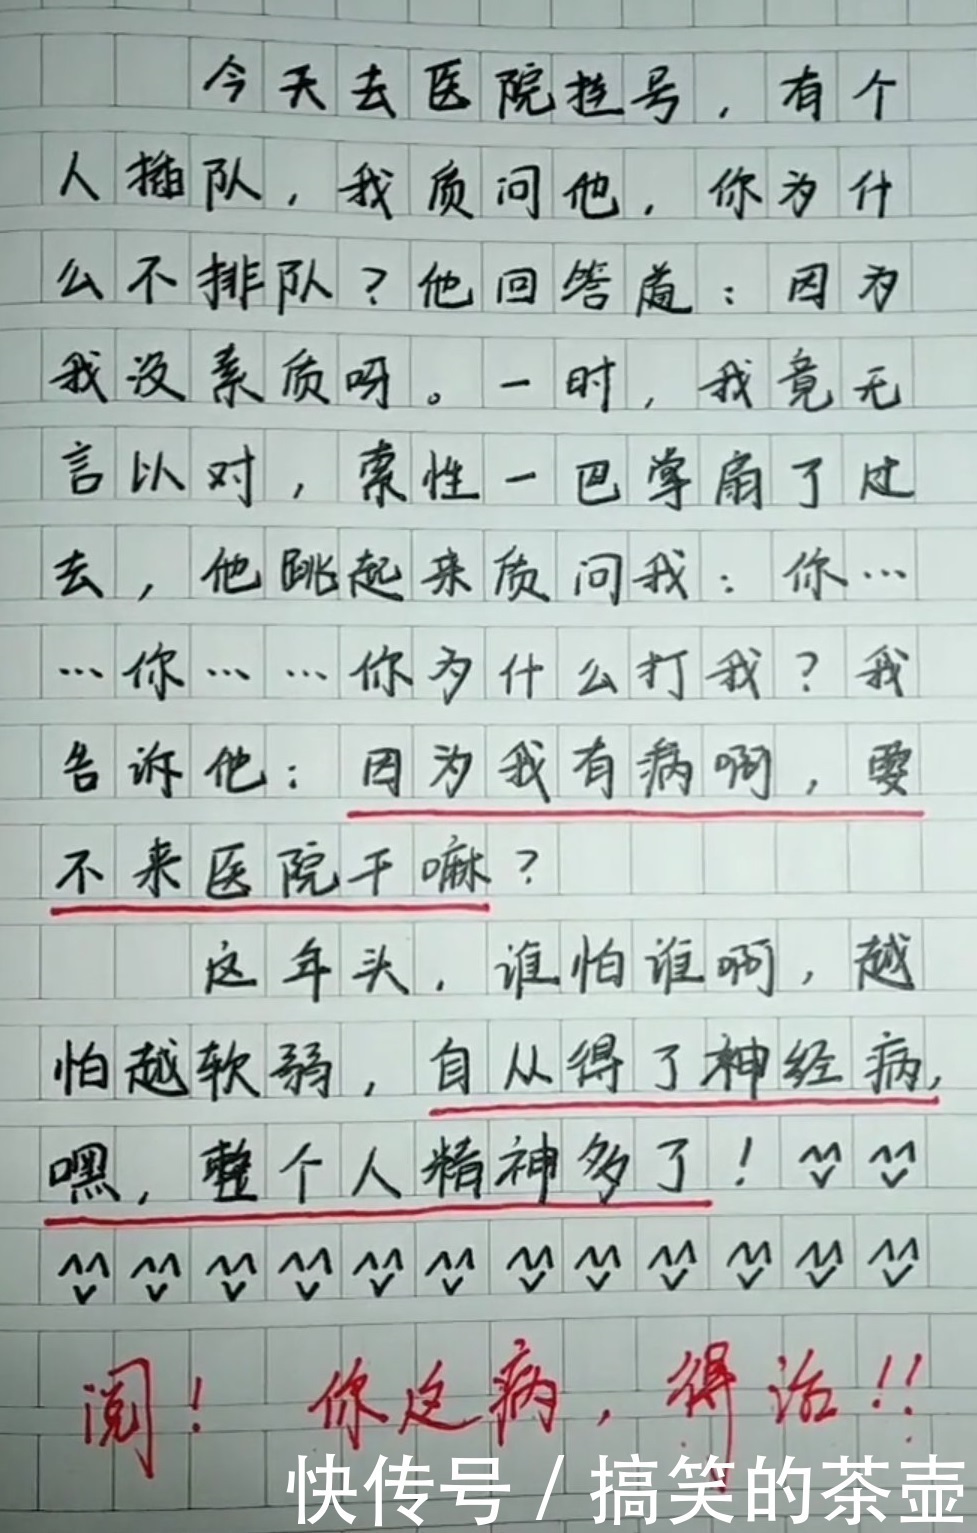 今天去医院挂号，有个
人插队，我质问他，你为什
么不排队？他回答道：因为
我没素质呀。一时，我竟无
言以对，索性一巴掌扇了过
去，他跳起来质问我：你…
…你……你为什么打我？我
告诉他：因为我有病啊，要
不来医院干嘛？
这年头，谁怕谁啊，越
怕越软弱，自从得了神经病，
嘿，整个人精神多了！
阅！你这病，得治！！
快传号/搞笑的茶壶